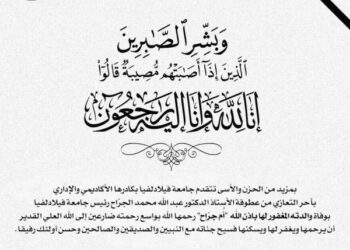 وَبَشِّرِ ٱلصَّـٰبِرِينَ
ٱلَّذِينَ إِذَآ أَصَـٰبَتْهُم مُّصِيبَةٌ قَالُوٓا۟
إِنَّا لِلَّهِ وَإِنَّآ إِلَيْهِ رَٰجِعُونَ
بمزيد من الحزن والأسى تتقدم جامعة فيلادلفيا بكادرها الأكاديمي والإداري
بأحر التعازي من عطوفة الأستاذ الدكتور عبد الله محمد الجراح رئيس جامعة فيلادلفيا
بوفاة والدته المغفور لها بإذن الله "أم جراح" رحمها الله بواسع رحمته ضارعين إلى الله العلي القدير
أن يرحمها ويغفر لها ويسكنها فسيح جناته مع النبيين والصديقين والصالحين وحسن أولئك رفيقا .